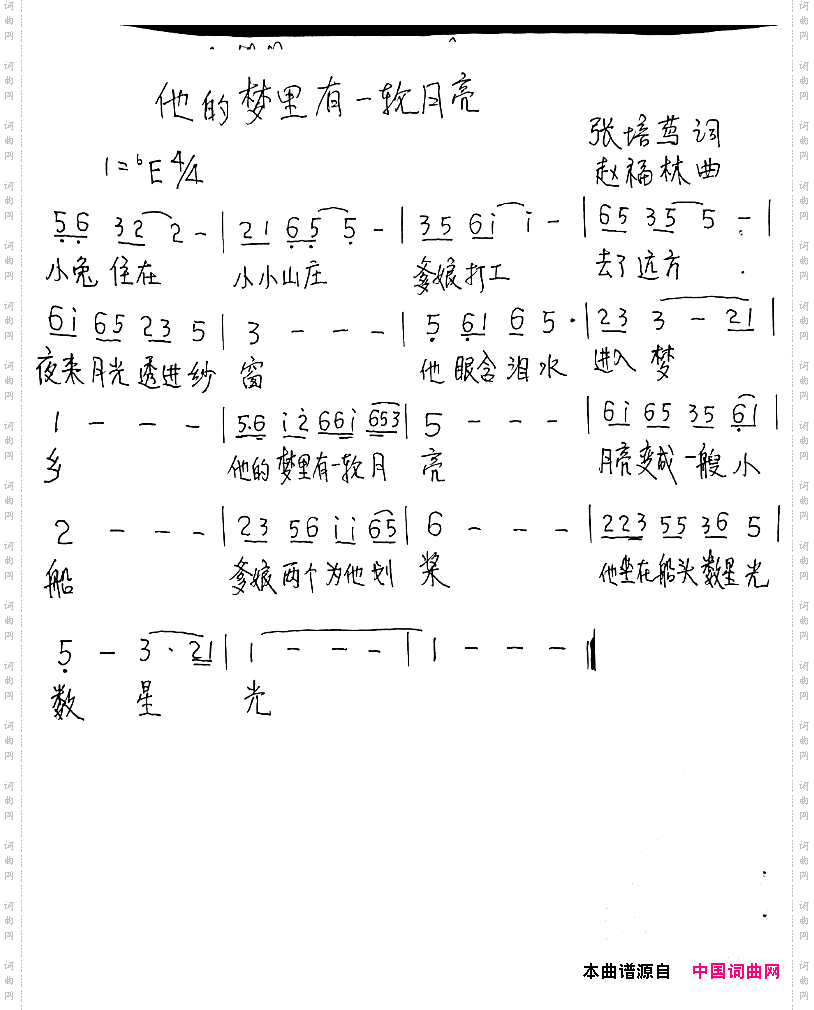 他的梦里有一轮月亮
张培茑词
1=♭E 4/4
赵福林曲
5̣6̣ 32 2 - | 21 6̣5̣ 5̣ - | 35 6i i - | 65 35 5 - |
小兔 住在 小小山庄 爹娘打工 去了远方
6i 65 23 5 | 3 - - - | 5̣ 6̣1 6̣ 5· | 23 3 - 21 |
夜来月光透进纱 窗 他眼含泪水 进入梦
1 - - - | 5·6 i2̇ 66i 653 | 5 - - - | 6i 65 35 6̣1 |
乡 他的梦里有一轮月 亮 月亮变成一艘小
2 - - - | 23 56 ii 65 | 6 - - - | 223 55 36 5 |
船 爹娘两个为他划 桨 他坐在船头数星光
5̣ - 3· 21 | 1 - - - | 1 - - - ‖
数 星 光
本曲谱源自 中国词曲网